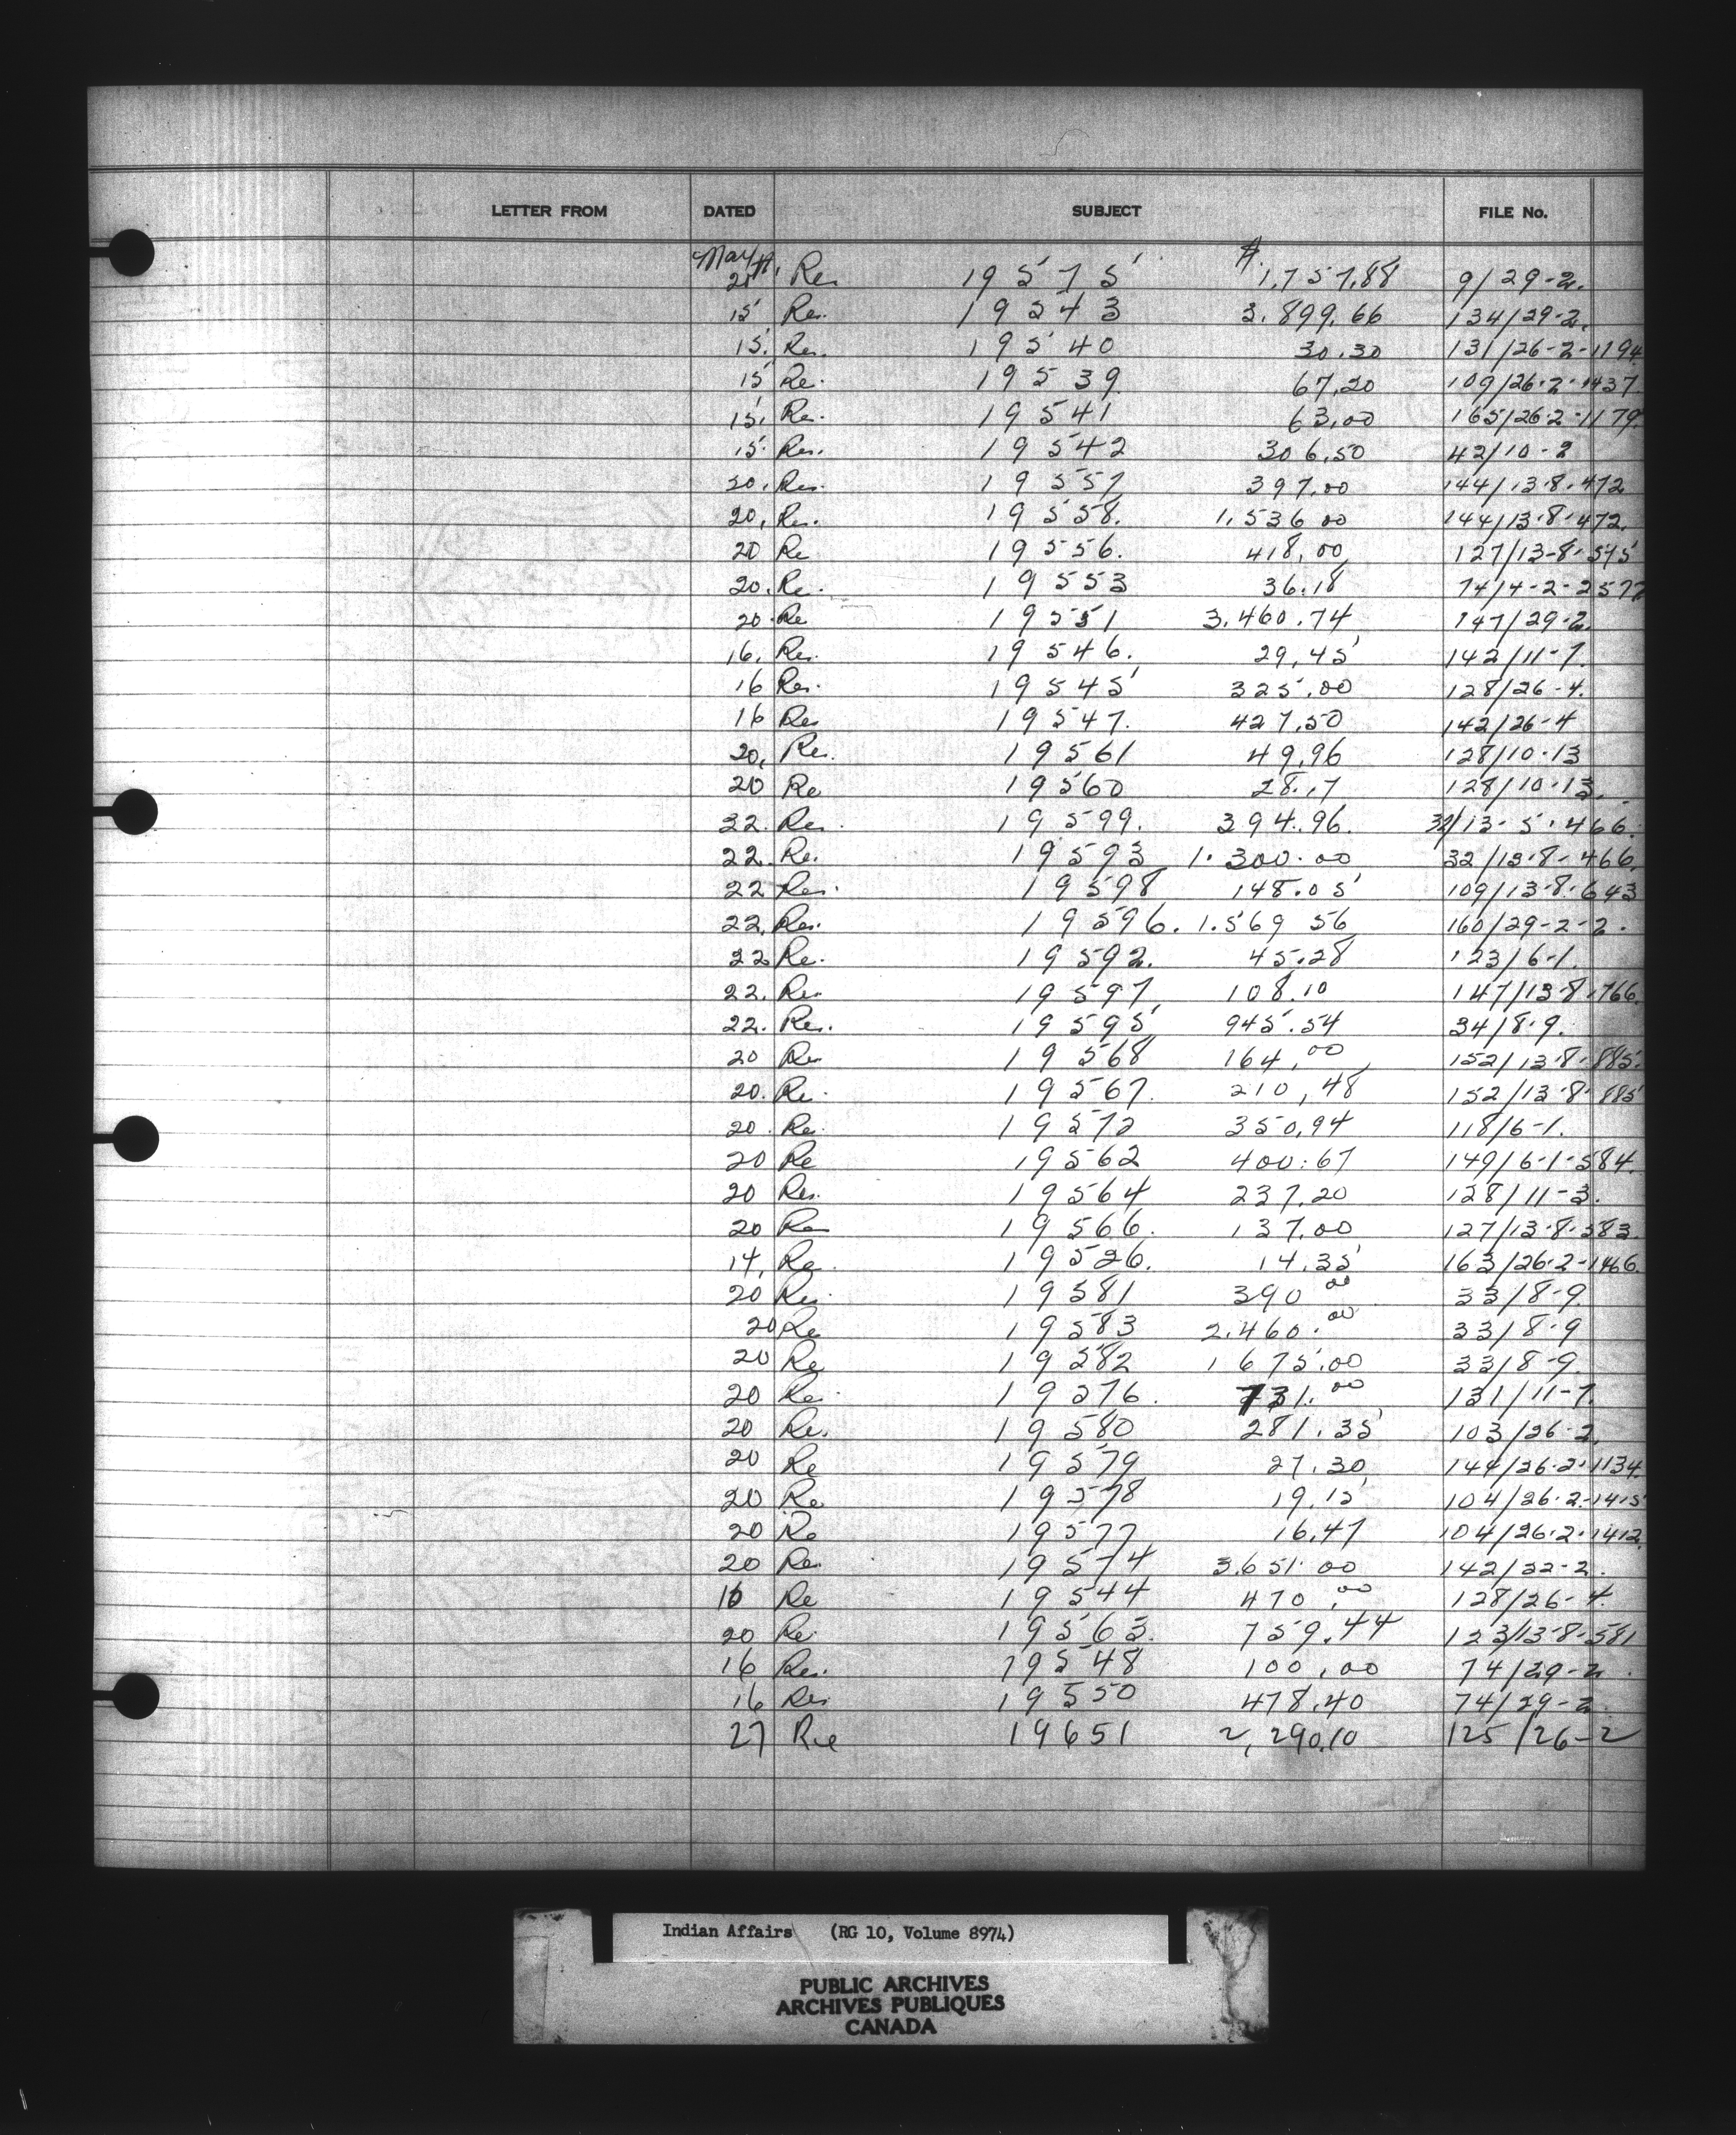 LETTER FROM DATED SUBJECT FILE No.
May
Re. 19575 $ 1,757.88 9/29-2.
15 Re. 19543 3.899.66 134/29-2.
15. Re. 19540 30.30 131/26-2-1194
15 Re. 19539 67.20 109/26-2-1437
15. Re. 19541 63.00 165/26-2-1179
15. Re. 19542 306.50 42/10-2
20. Re. 19557 397.00 144/13-8-472
20. Re. 19558. 1.536 00 144/13-8-472.
20 Re 19556. 418.00 127/13-8-575
20. Re. 19553 36.18 74/4-2-2577
20. Re 19551 3.460.74 147/29-2.
16. Re. 19546. 29.45 142/11-7.
16 Re. 19545 325.00 128/26-4.
16 Re 19547. 427.50 142/26-4
20. Re. 19561 49.96 128/10-13
20 Re 19560 28.17 128/10-13.
22. Re. 19599. 394.96. 32/13-5-466.
22. Re. 19593 1.300.00 32/13-8-466.
22 Re. 19598 148.05 109/13-8-643
22. Re. 19596. 1.569 56 160/29-2-2.
22 Re. 19592. 45.28 123/6-1.
22. Re. 19597 108.10 147/13-8-766.
22. Re. 19595 945.54 34/8-9.
20 Re 19568 164.00 152/13-8-885.
20. Re. 19567. 210.48 152/13-8-885
20. Re. 19572 350.94 118/6-1.
20 Re 19562 400.67 149/6-1-584.
20 Re. 19564 237.20 128/11-3.
20 Re 19566. 137.00 127/13-8-583.
14. Re. 19526. 14.35 163/26-2-1466.
20 Re. 19581 390 00 33/8-9.
20 Re 19583 2.460.00 33/8-9
20 Re 19582 1 675.00 33/8-9.
20 Re. 19576. 731.00 131/11-7.
20 Re. 19580 281.35 103/26-2.
20 Re 19579 27.30 144/26-2-1134.
20 Re 19578 19.15 104/26-2-1415
20 Re 19577 16.47 104/26-2-1412.
20 Re. 19574 3.651.00 142/32-2.
16 Re 19544 470.00 128/26-4.
20 Re. 19563. 759.44 123/13-8-581
16 Re. 19548 100.00 74/29-2.
16 Re. 19550 478.40 74/29-2.
27 Re 19651 2,290.10 125/26-2
Indian Affairs (RG 10, Volume 8974)
PUBLIC ARCHIVES
ARCHIVES PUBLIQUES
CANADA